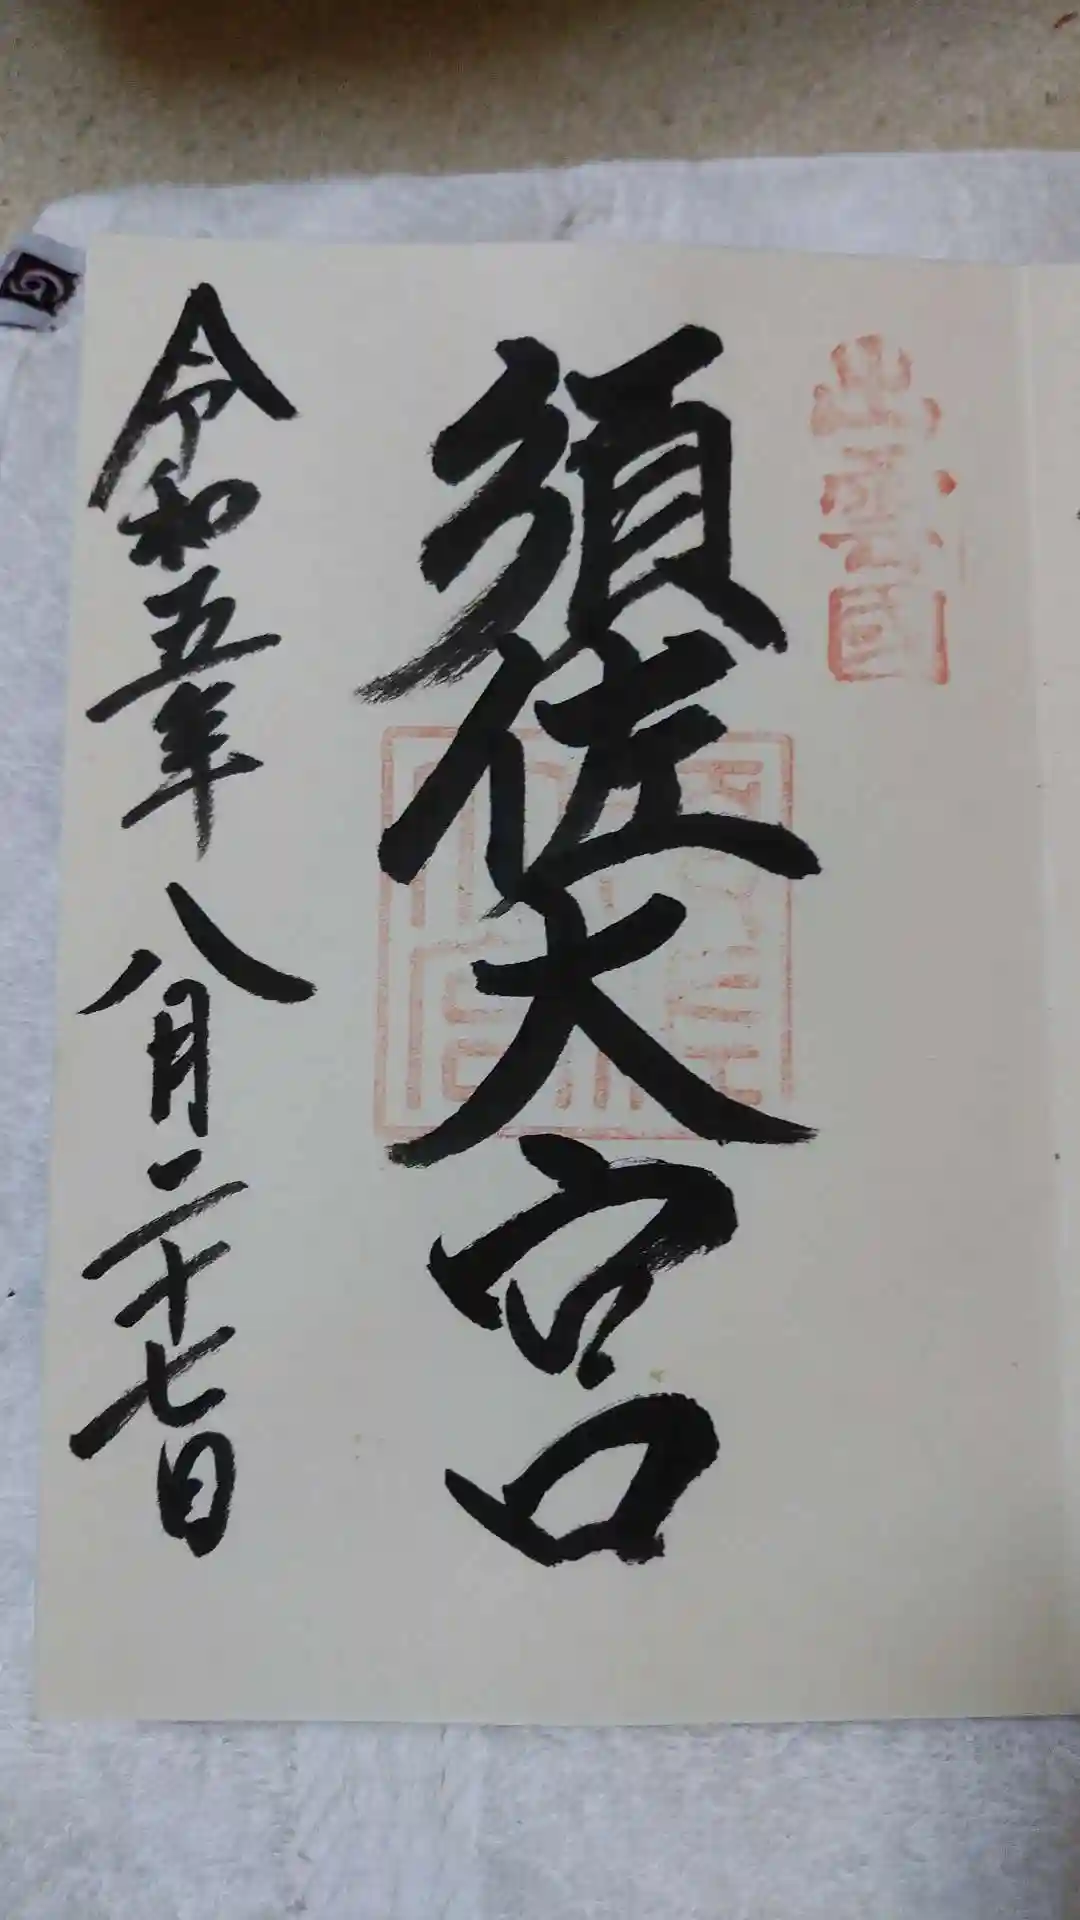 出雲國
須佐大宮
令和五年八月二十七日